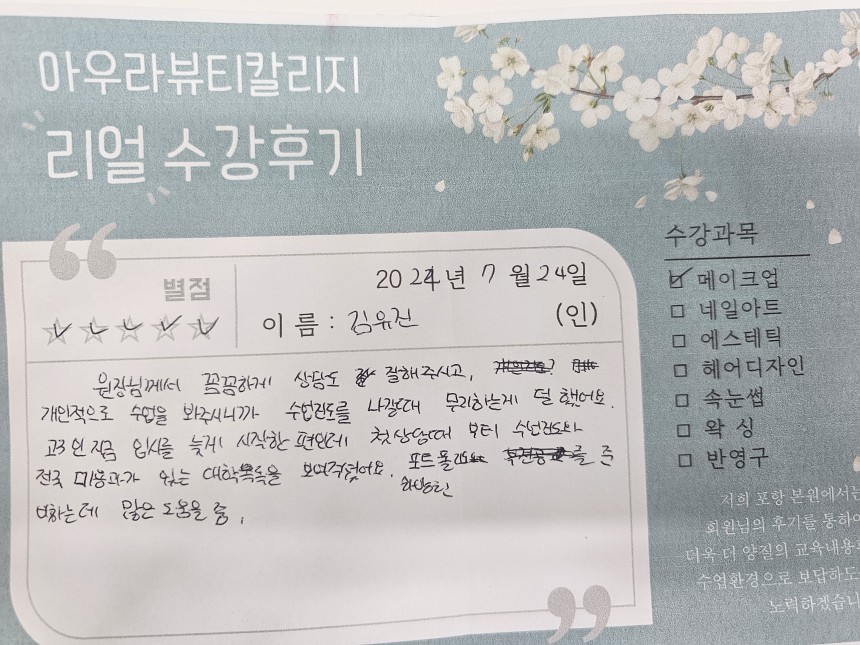 아우라뷰티칼리지
리얼 수강후기
별점
2024년 7월 24일
이 름 : 김유진 (인)
원장님께서 꼼꼼하게 상담도 잘해주시고,
개인적으로 수업을 봐주시니까 수업진도를 나갈때 무리하는게 덜 했어요.
고3인 지금 입시를 늦게 시작한 편인데 첫상담때 부터
전국 미용과가 있는 대학목록을 보여주셨어요. 포트폴리오 를 준
비하는데 많은 도움을 줌.
수강과목
메이크업
네일아트
에스테틱
헤어디자인
속눈썹
왁싱
반영구
저희 포항 본원에서는
회원님의 후기를 통하여
더욱 더 양질의 교육내용
수업환경으로 보답하도
노력하겠습니